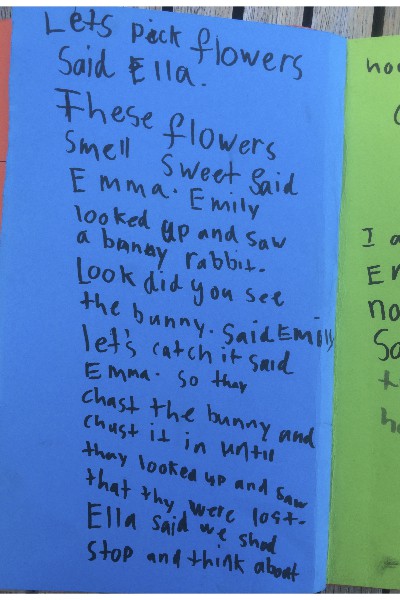 Lets pick flowers
Said Ella.
These flowers
smell sweet said
Emma. Emily
looked up and saw
a bunny rabbit.
Look did you see
the bunny. said Emily
let's catch it said
Emma. so thay
chast the bunny and
chast it in until
thay looked up and saw
that thy were lost.
Ella said we shod
stop and think about
I